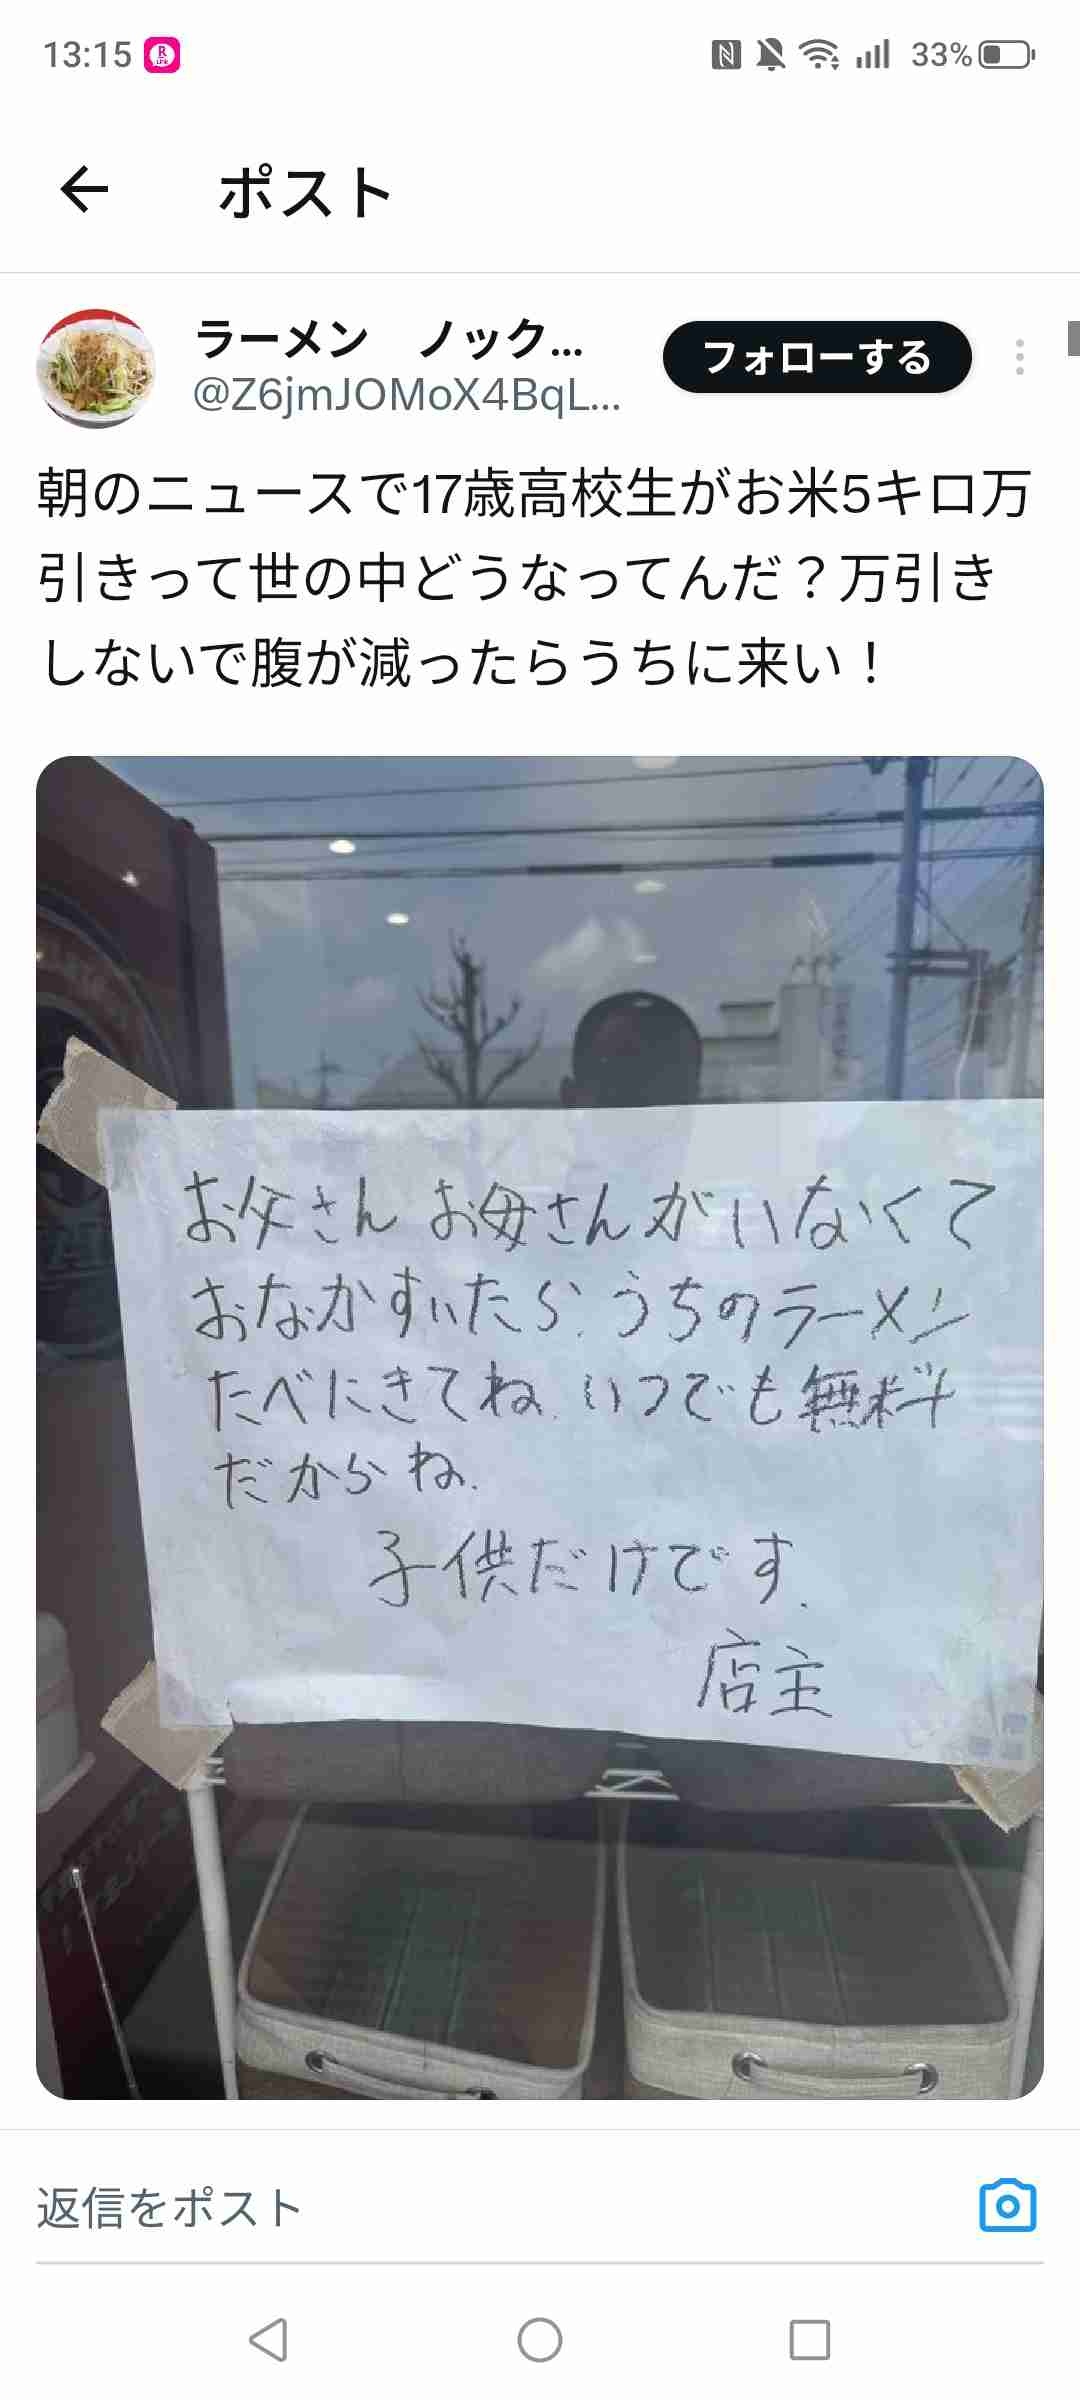 13:15
33%
ポスト
ラーメン　ノック...
@Z6jmJOMoX4BqL...
フォローする
朝のニュースで17歳高校生がお米5キロ万
引きって世の中どうなってんだ？万引き
しないで腹が減ったらうちに来い！
お父さん お母さんがいなくて
おなかすいたら、うちのラーメン
たべにきてね、いつでも無料
だからね、
子供だけです、
店主
返信をポスト